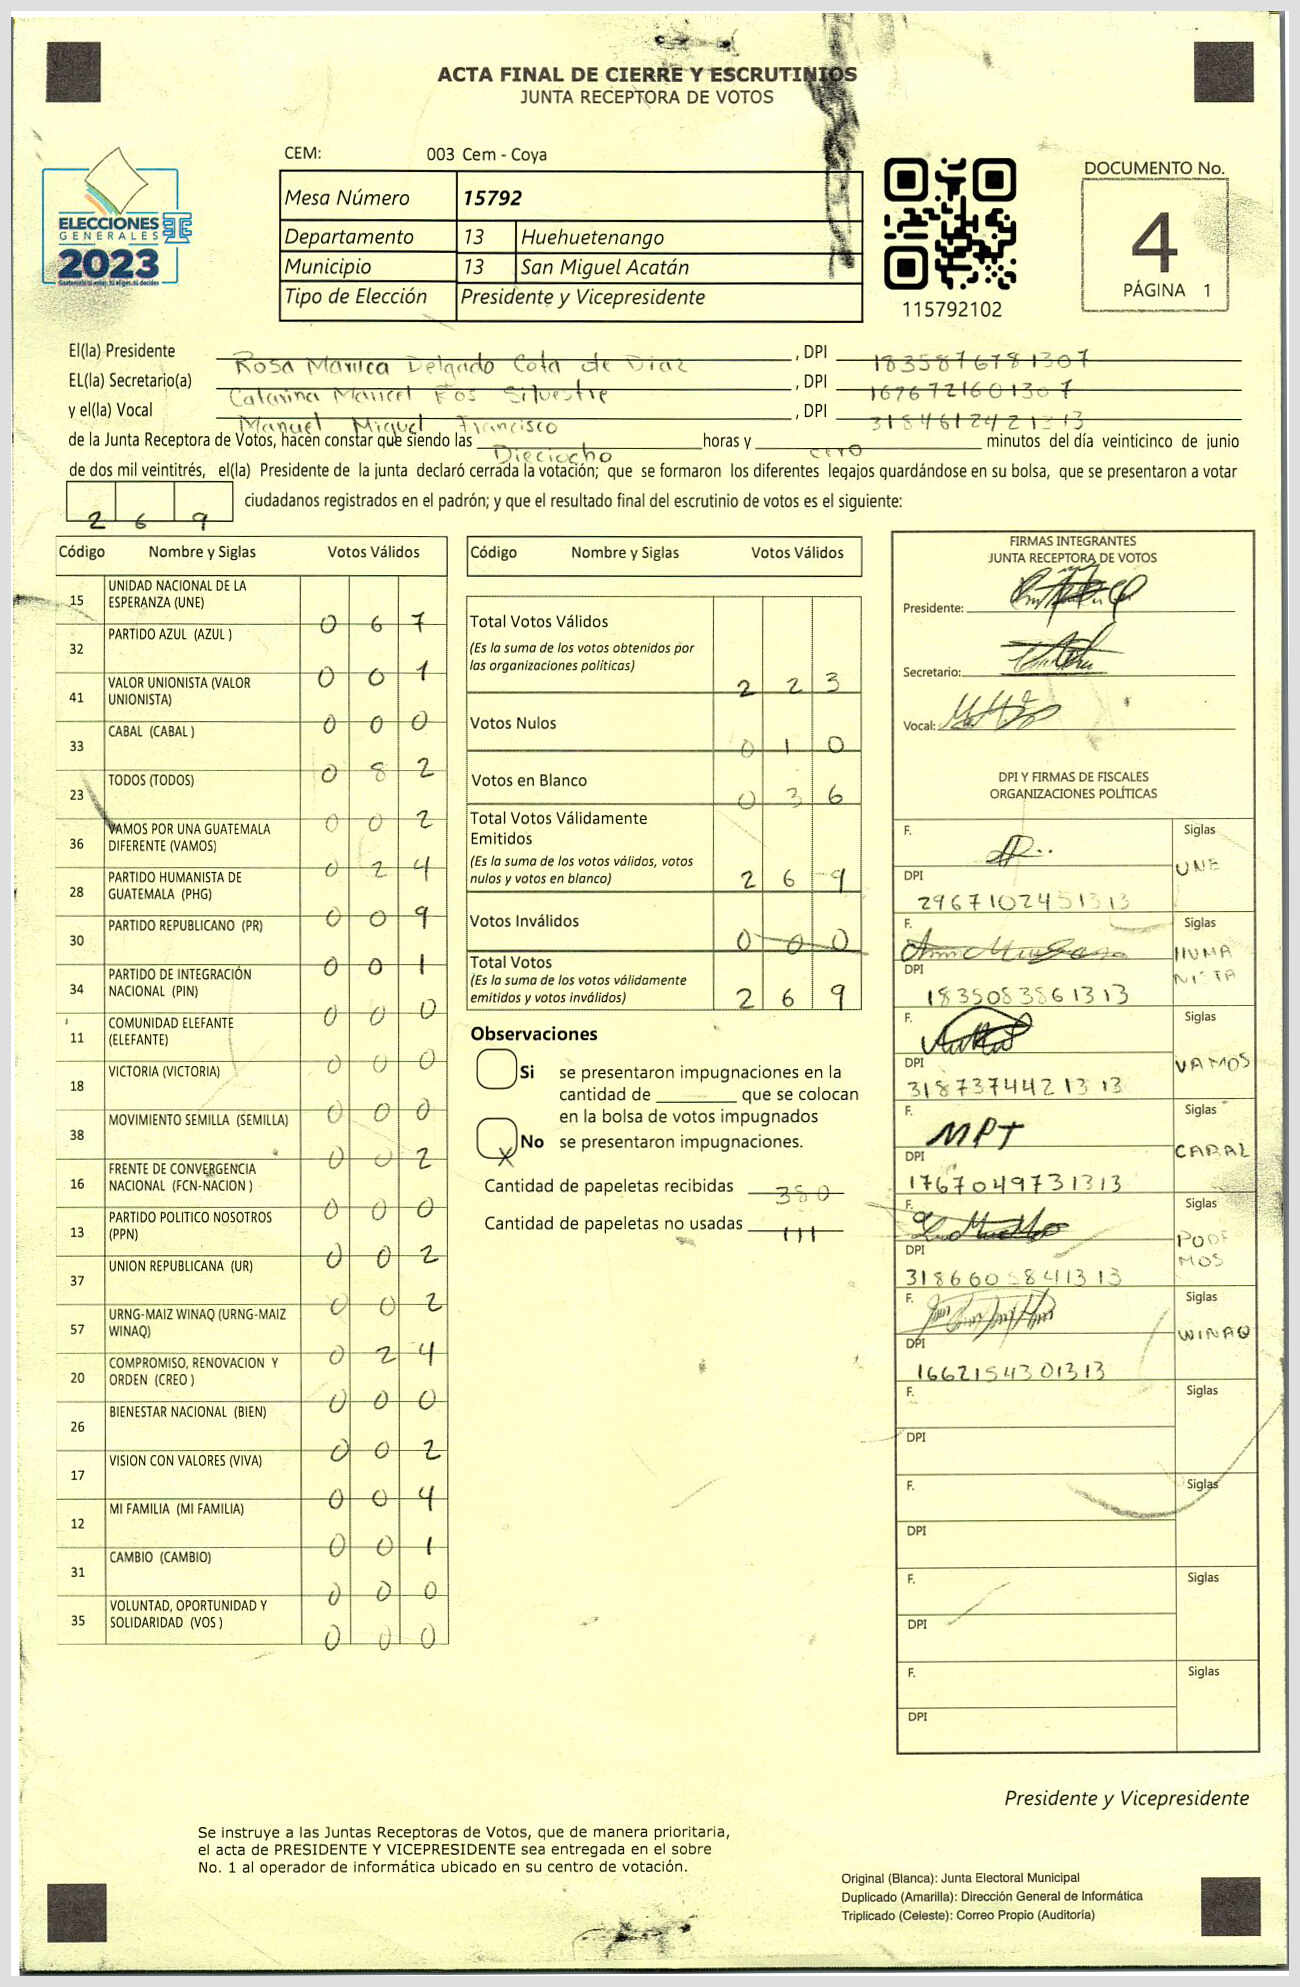 ACTA FINAL DE CIERRE Y ESCRUTINIOS
JUNTA RECEPTORA DE VOTOS
CEM: 003 Cem - Coya
Mesa Número 15792
Departamento 13 Huehuetenango
Municipio 13 San Miguel Acatán
Tipo de Elección Presidente y Vicepresidente
ELECCIONES
GENERALES
2023
115792102
DOCUMENTO No.
4
PÁGINA 1
El(la) Presidente Rosa Marilca Delgado Cota de Diaz, DPI 1835876781307
EL(la) Secretario(a) Catarina Maricel Fos Silvestre, DPI 1676721601307
y el(la) Vocal Manuel Miguel Francisco, DPI 3184612421313
de la Junta Receptora de Votos, hacen constar que siendo las Dieciocho horas y cero minutos del día veinticinco de junio
de dos mil veintitrés, el(la) Presidente de la junta declaró cerrada la votación; que se formaron los diferentes legajos guardándose en su bolsa, que se presentaron a votar
269 ciudadanos registrados en el padrón; y que el resultado final del escrutinio de votos es el siguiente:
Código Nombre y Siglas Votos Válidos
15 UNIDAD NACIONAL DE LA ESPERANZA (UNE) 0 6 7
32 PARTIDO AZUL (AZUL ) 0 0 1
41 VALOR UNIONISTA (VALOR UNIONISTA) 0 0 0
33 CABAL (CABAL ) 0 8 2
23 TODOS (TODOS) 0 0 2
36 VAMOS POR UNA GUATEMALA DIFERENTE (VAMOS) 0 2 4
28 PARTIDO HUMANISTA DE GUATEMALA (PHG) 0 0 9
30 PARTIDO REPUBLICANO (PR) 0 0 1
34 PARTIDO DE INTEGRACIÓN NACIONAL (PIN) 0 0 0
11 COMUNIDAD ELEFANTE (ELEFANTE) 0 0 0
18 VICTORIA (VICTORIA) 0 0 0
38 MOVIMIENTO SEMILLA (SEMILLA) 0 0 2
16 FRENTE DE CONVERGENCIA NACIONAL (FCN-NACION ) 0 0 0
13 PARTIDO POLITICO NOSOTROS (PPN) 0 0 2
37 UNION REPUBLICANA (UR) 0 0 2
57 URNG-MAIZ WINAQ (URNG-MAIZ WINAQ) 0 2 4
20 COMPROMISO, RENOVACION Y ORDEN (CREO ) 0 0 0
26 BIENESTAR NACIONAL (BIEN) 0 0 2
17 VISION CON VALORES (VIVA) 0 0 4
12 MI FAMILIA (MI FAMILIA) 0 0 1
31 CAMBIO (CAMBIO) 0 0 0
35 VOLUNTAD, OPORTUNIDAD Y SOLIDARIDAD (VOS ) 0 0 0
Código Nombre y Siglas Votos Válidos
Total Votos Válidos 2 2 3
(Es la suma de los votos obtenidos por
las organizaciones políticas)
Votos Nulos 0 1 0
Votos en Blanco 0 3 6
Total Votos Válidamente
Emitidos
(Es la suma de los votos válidos, votos
nulos y votos en blanco) 2 6 9
Votos Inválidos 0 0 0
Total Votos
(Es la suma de los votos válidamente
emitidos y votos inválidos) 2 6 9
Observaciones
Si se presentaron impugnaciones en la
cantidad de ________ que se colocan
en la bolsa de votos impugnados
X No se presentaron impugnaciones.
Cantidad de papeletas recibidas 380
Cantidad de papeletas no usadas 111
FIRMAS INTEGRANTES
JUNTA RECEPTORA DE VOTOS
Presidente:
Secretario:
Vocal:
DPI Y FIRMAS DE FISCALES
ORGANIZACIONES POLÍTICAS
F. Siglas UNE
DPI 2967102451313
F. Siglas HUMA NISTA
DPI 1835083861313
F. Siglas VAMOS
DPI 3187374421313
F. MPT Siglas CABAL
DPI 1767049731313
F. Siglas PODE MOS
DPI 3186605841313
F. Siglas WINAQ
DPI 1662154301313
F. Siglas
DPI
F. Siglas
DPI
F. Siglas
DPI
F. Siglas
DPI
Presidente y Vicepresidente
Se instruye a las Juntas Receptoras de Votos, que de manera prioritaria,
el acta de PRESIDENTE Y VICEPRESIDENTE sea entregada en el sobre
No. 1 al operador de informática ubicado en su centro de votación.
Original (Blanca): Junta Electoral Municipal
Duplicado (Amarilla): Dirección General de Informática
Triplicado (Celeste): Correo Propio (Auditoría)